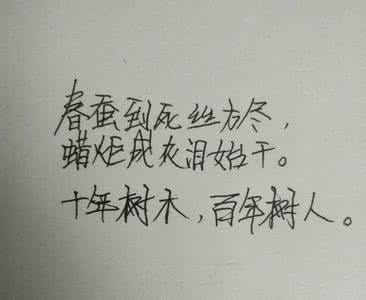 春蚕到死丝方尽，
蜡炬成灰泪始干。
十年树木，百年树人。